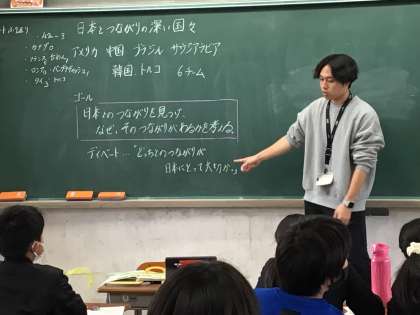 日本とつながりの深い国々
アメリカ 中国 ブラジル サウジアラビア
韓国 トルコ 6チーム
ゴール
日本とのつながりを見つけ、
なぜ、そのつながりがあるかを考える。
ディベート…"どっちとのつながりが
日本にとって大切か。"